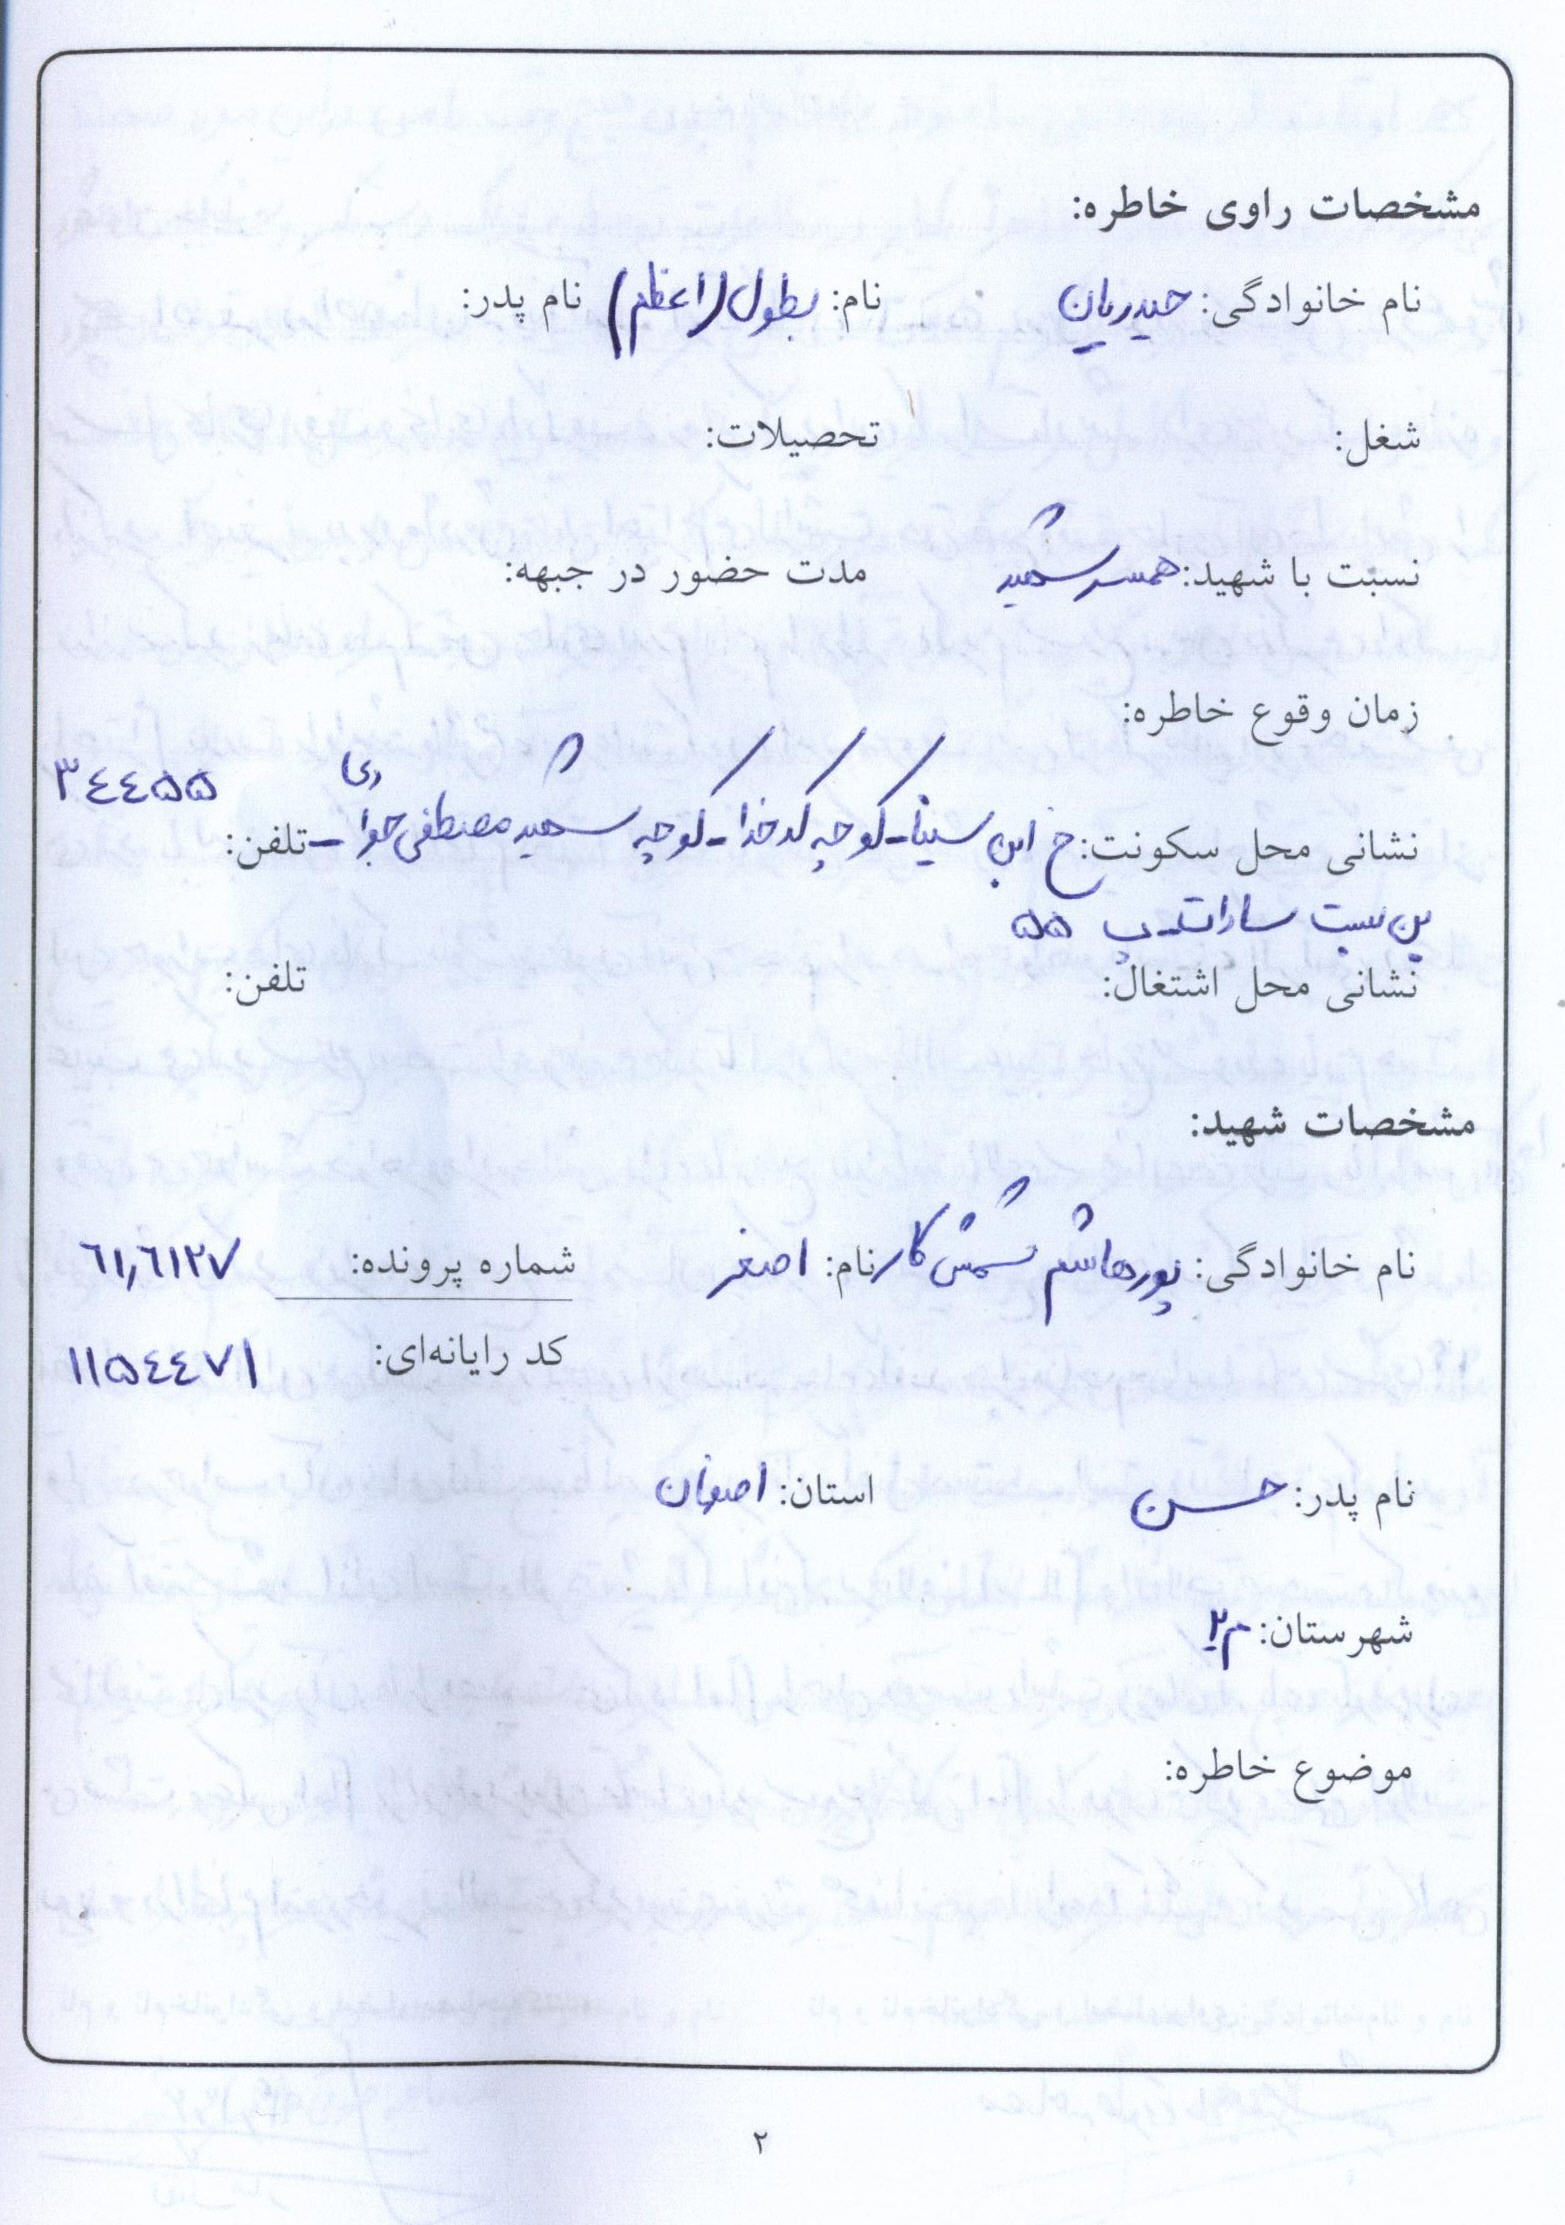 مشخصات راوی خاطره:
نام خانوادگی: حیدریان نام: بطول (اعظم) نام پدر:
شغل: تحصیلات:
نسبت با شهید: همسر شهید مدت حضور در جبهه:
زمان وقوع خاطره:
نشانی محل سکونت: خ ابن سینا - کوچه کدخدا - کوچه شهید مصطفی - تلفن: ٣٤٤٥٥
بن بست سادات پ ٥٥
نشانی محل اشتغال: تلفن:
مشخصات شهید:
نام خانوادگی: پورهاشم شمش کار نام: اصغر شماره پرونده: ٦١,٦١٢٧
کد رایانه‌ای: ١١٥٤٤٧١
نام پدر: حسن استان: اصفهان
شهرستان: م ٢
موضوع خاطره:
۲